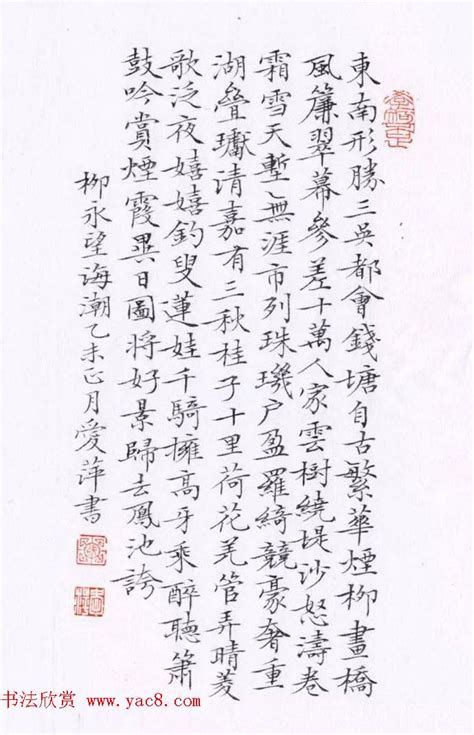 東南形勝三吳都會錢塘自古繁華煙柳畫橋
風簾翠幕參差十萬人家雲樹繞堤沙怒濤卷
霜雪天塹無涯市列珠璣户盈羅綺競豪奢重
湖疊巘清嘉有三秋桂子十里荷花羌管弄晴菱
歌泛夜嬉嬉釣叟蓮娃千騎擁高牙乘醉聽簫
鼓吟賞煙霞異日圖將好景歸去鳳池誇
柳永望海潮乙未正月愛萍書
书法欣赏 www.yac8.com